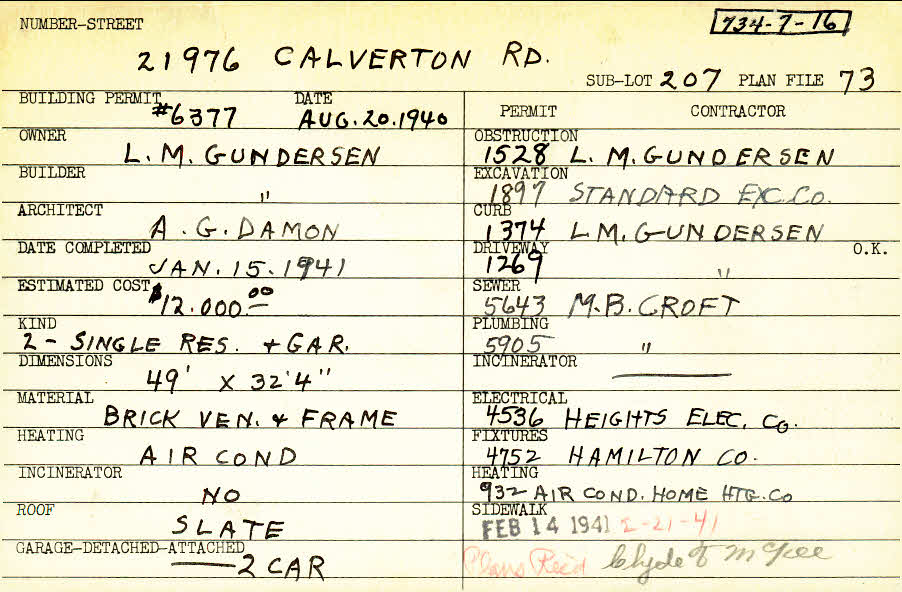 NUMBER-STREET
734-7-16
21976 CALVERTON RD.
SUB-LOT 207 PLAN FILE 73
BUILDING PERMIT #6377
DATE AUG. 20. 1940
OWNER
L. M. GUNDERSEN
BUILDER
"
ARCHITECT
A. G. DAMON
DATE COMPLETED
JAN. 15. 1941
ESTIMATED COST $12.000.00
KIND
2 - SINGLE RES. + GAR.
DIMENSIONS
49' X 32'4"
MATERIAL
BRICK VEN. & FRAME
HEATING
AIR COND
INCINERATOR
NO
ROOF
SLATE
GARAGE-DETACHED-ATTACHED
2 CAR
PERMIT CONTRACTOR
OBSTRUCTION
1528 L. M. GUNDERSEN
EXCAVATION
1897 STANDARD EXC. Co.
CURB
1374 L.M. GUNDERSEN
DRIVEWAY O.K.
1269 "
SEWER
5643 M.B. CROFT
PLUMBING
5905 "
INCINERATOR
ELECTRICAL
4536 HEIGHTS ELEC. Co.
FIXTURES
4752 HAMILTON CO.
HEATING
932 AIR COND. HOME HTG. Co
SIDEWALK
FEB 14 1941 2-21-41
Plans Rec'd Clyde